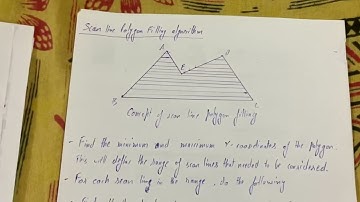 Scan line Polygon Filling algorithm
A
D
E
B
C
Concept of scan line polygon filling
- Find the minimum and maximum Y-coordinates of the polygon.
This will define the range of scan lines that needed to be considered.
- For each scan line in the range, do the following